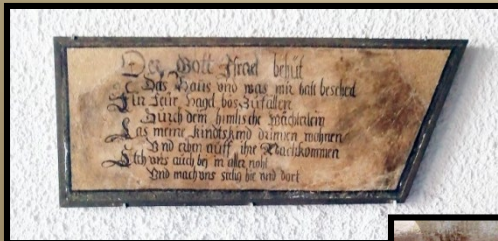 Der Gott Israel behüt
Das Haus und was mir hatt besched
Für Feür Hagel bös Zufällen
Durch dein himlische Wächtelein
Las meine kindtskind drinen wohnen
Und eben auff ihr Nachkommen
Steh uns auch bei in aller noht
Und mach uns selig hie und dort